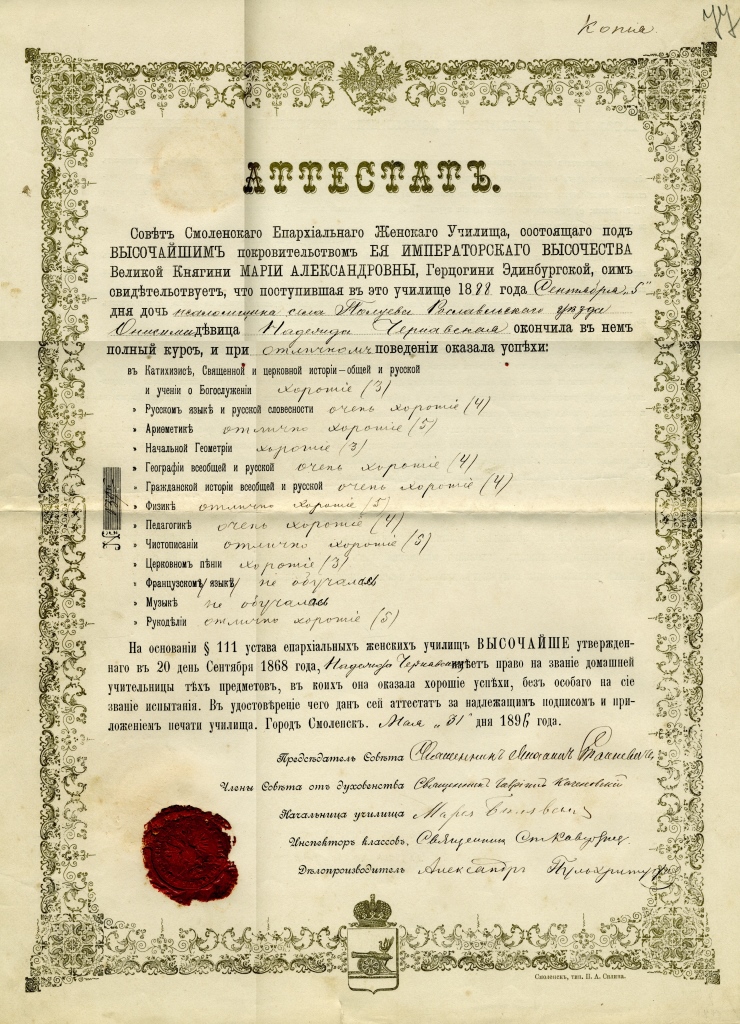 Копия.
77
АТТЕСТАТЪ.
Совѣтъ Смоленскаго Епархіальнаго Женскаго Училища, состоящаго подъ
ВЫСОЧАЙШИМЪ покровительствомъ ЕЯ ИМПЕРАТОРСКАГО ВЫСОЧЕСТВА
Великой Княгини МАРІИ АЛЕКСАНДРОВНЫ, Герцогини Эдинбургской, симъ
свидѣтельствуетъ, что поступившая въ это училище 1888 года Сентября „5"
дня дочь псаломщика села Рославльскаго уѣзда
дѣвица Надежда Чернавская окончила въ немъ
полный курсъ, и при отличномъ поведеніи оказала успѣхи:
въ Катихизисѣ, Священной и церковной исторіи—общей и русской
и ученіи о Богослуженіи хорошіе (3)
» Русскомъ языкѣ и русской словесности очень хорошіе (4)
» Ариѳметикѣ отлично хорошіе (5)
» Начальной Геометріи хорошіе (3)
» Географіи всеобщей и русской очень хорошіе (4)
» Гражданской исторіи всеобщей и русской очень хорошіе (4)
» Физикѣ отлично хорошіе (5)
» Педагогикѣ очень хорошіе (4)
» Чистописаніи отлично хорошіе (5)
» Церковномъ пѣніи хорошіе (3)
» Французскомъ языкѣ не обучалась
» Музыкѣ не обучалась
» Рукодѣліи отлично хорошіе (5)
№
На основаніи § 111 устава епархіальныхъ женскихъ училищъ ВЫСОЧАЙШЕ утвержден-
наго въ 20 день Сентября 1868 года, Надежда Чернавская имѣетъ право на званіе домашней
учительницы тѣхъ предметовъ, въ коихъ она оказала хорошіе успѣхи, безъ особаго на сіе
званіе испытанія. Въ удостовѣреніе чего данъ сей аттестатъ за надлежащимъ подписомъ и при-
ложеніемъ печати училища. Городъ Смоленскъ. Мая „31" дня 189 года.
Предсѣдатель Совѣта Священникъ
Члены Совѣта отъ духовенства Священникъ Гавріилъ
Начальница училища Марія
Инспекторъ классовъ, Священникъ
Дѣлопроизводитель Александръ
Смоленскъ, тип. П. А. Силина.